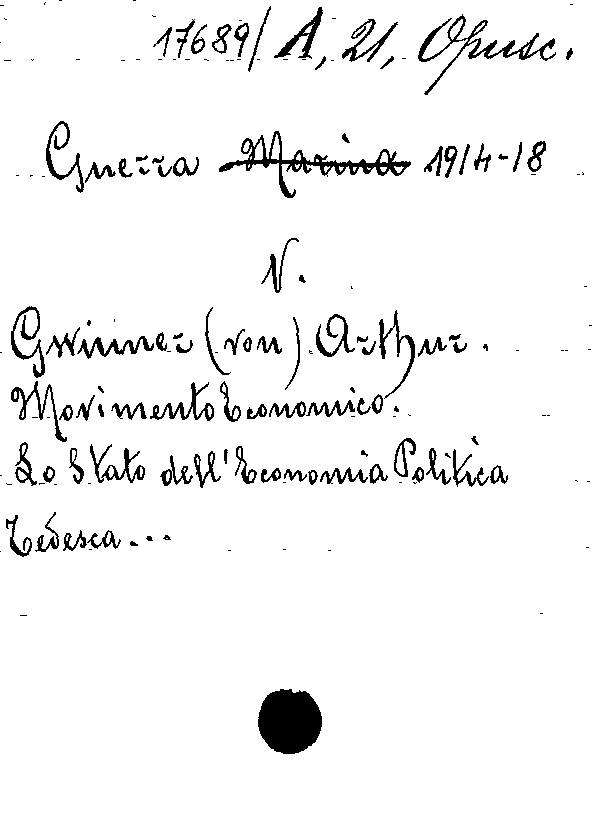 17689/ A, 21, Opusc.
Guerra Marina 1914-18
V.
Gwinner (von) Arthur.
Movimento Economico.
Lo Stato dell'Economia Politica
Tedesca...